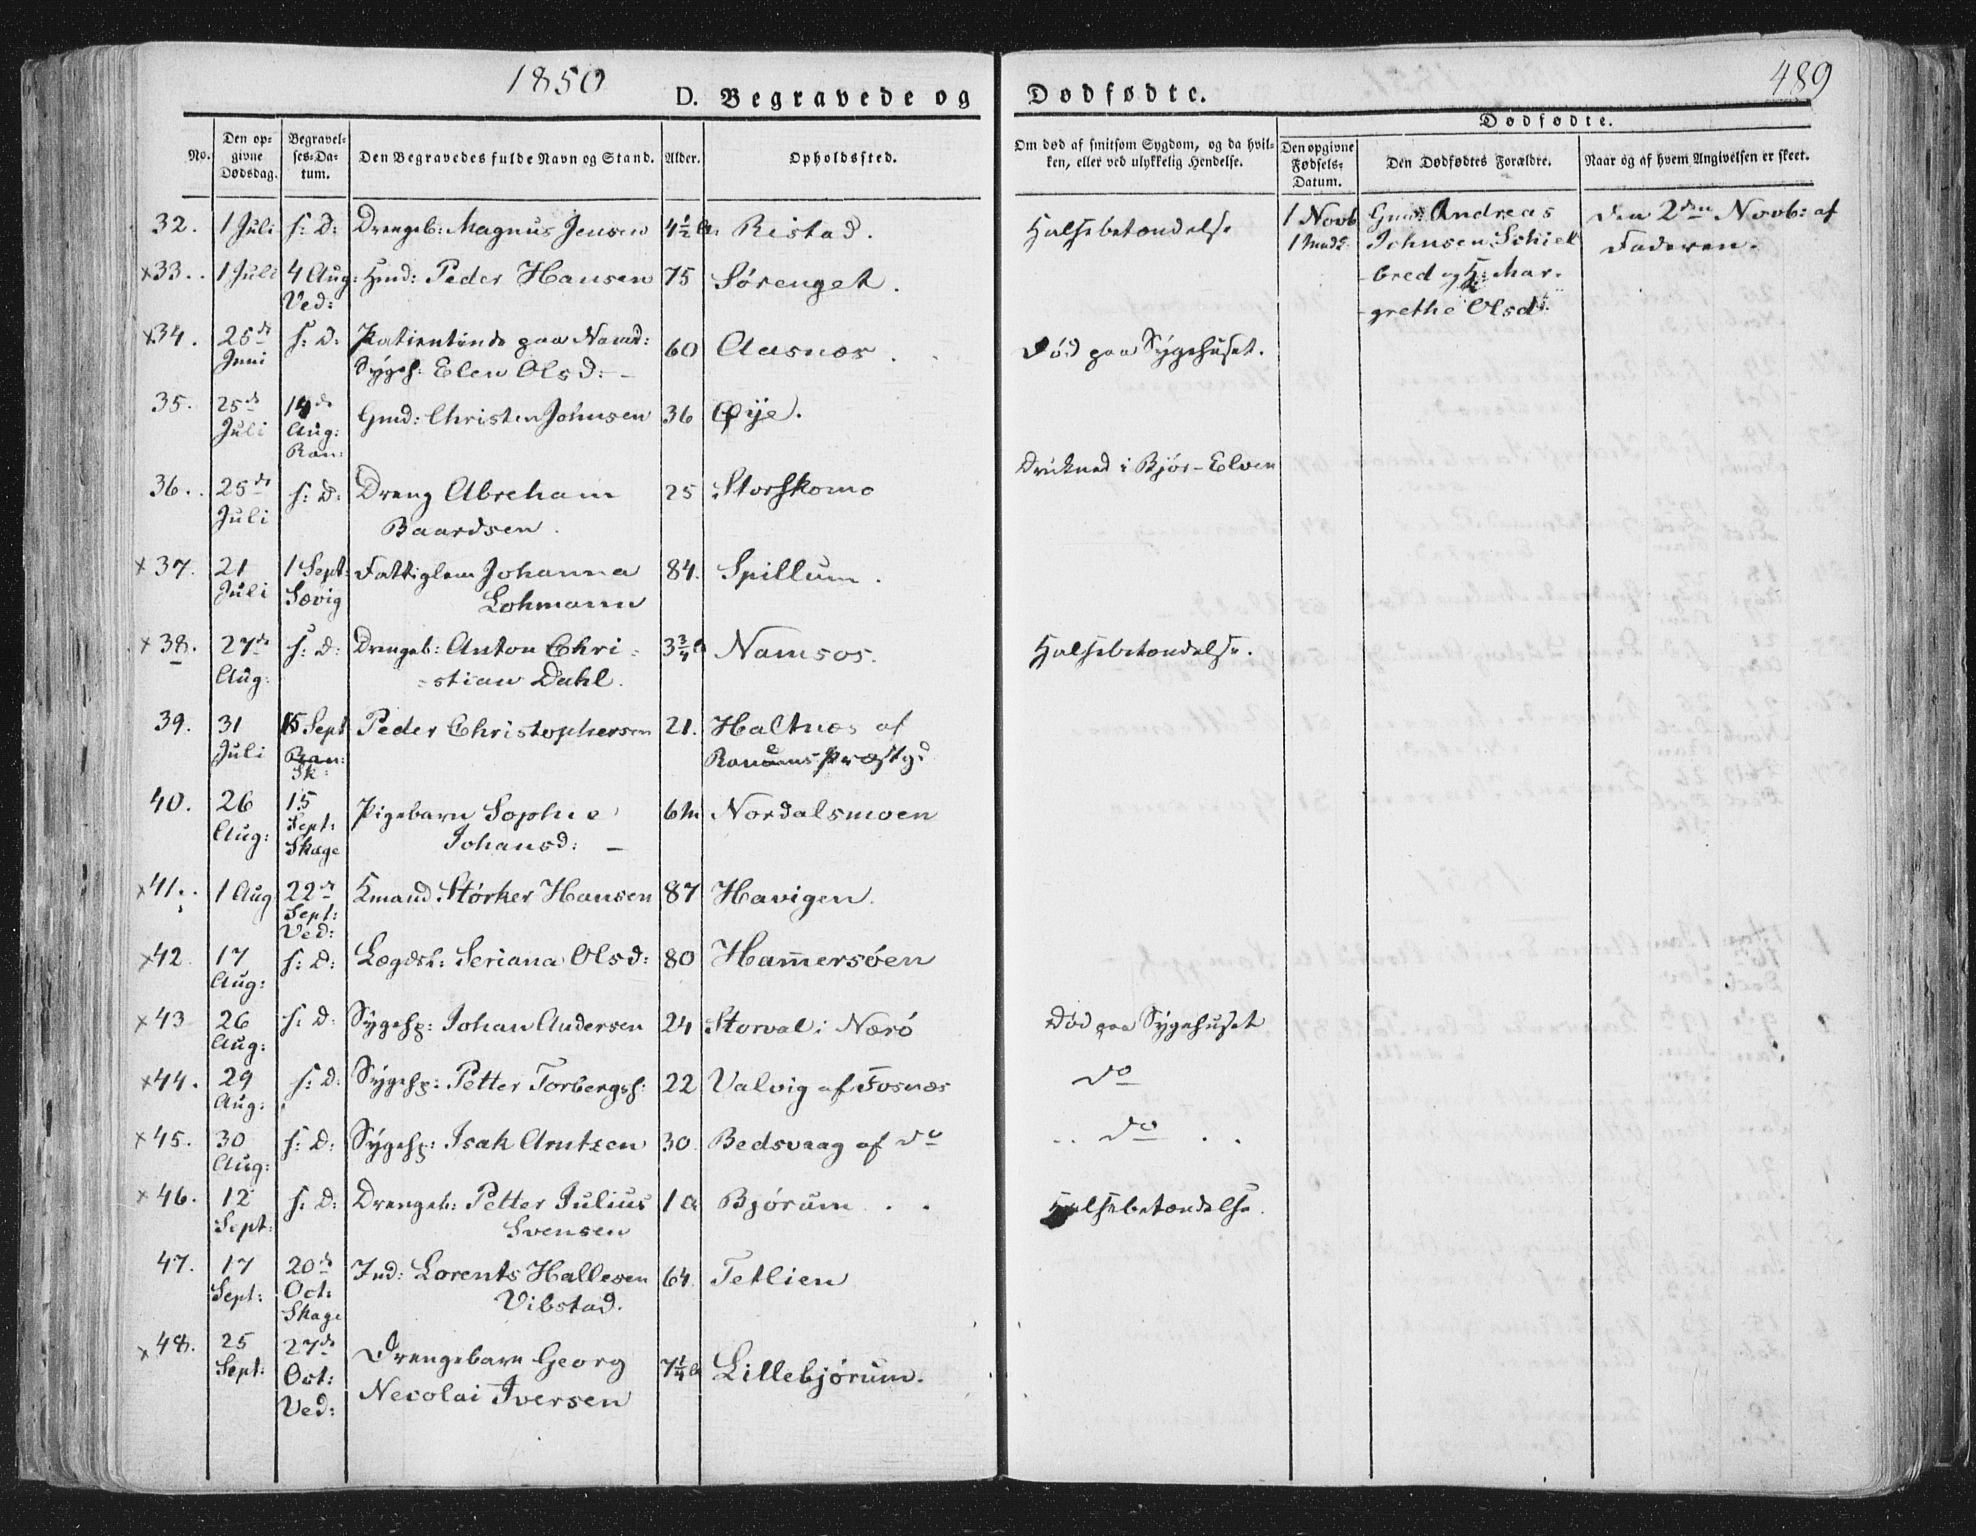 1850
D. Begravede og Dødfødte.
489
Dødfødte.
No.
Den op-
givne
Dødsdag.
Begravel-
ses-Da-
tum.
Den Begravedes fulde Navn og Stand.
Alder.
Opholdssted.
Om død af smitsom Sygdom, og da hvil-
ken, eller ved ulykkelig Hendelse.
Den opgivne
Fødsels-
Datum.
Den Dødfødtes Forældre.
Naar og af hvem Angivelsen er skeet.
32. 1 Juli s: D: Drengeb: Magnus Jensen 4½ a: Ristad. Halsebetændelse
1 Novb
Gmd: Andreas
Johnsen Schiel
bred og H: Mar-
grethe Olsd:
Den 2den Novb: af
Faderen.
x33. 1 Juli 4 Aug: Hmd: Peder Hansen 75 Sørenget.
Ved:
x34. 25de s: D: Patientinde paa Namd: 60 Aasnæs. Død paa Sygehuset.
Juni Sygeh: Elen Olsd:
35. 25de 14de Gmd: Christen Johnsen 36 Øÿe.
Juli Aug:
Ran:
Druknet i Bjør-Elven
36. 25de s: D: Dreng Abreham 25 Storskomo
Juli Baardsen.
x37. 21 1 Sept: Fattiglem Johanna 84. Spillum.
Juli Sævig Lohmann
x38. 27de s: D: Drengeb: Anton Chri- 3¾ a Namsos. Halsebetændelse.
Aug: -stian Dahl.
39. 31 15 Sept Peder Christophersen 21. Haltnæs af
Juli Ran: Præstg:
Sk:
40. 26 15 Pigebarn Sophie 6 M Nordalsmoen
Aug: Sept: Johansd:
Skage
x41. 1 Aug 22de Kmand Størker Hansen 87 Havigen.
Sept:
Ved:
x42 17 s: D: Lægdsl: Seriana Olsd: 80 Hamersøen
Aug:
x43 26 s: D: Sygehp: Johan Andersen 24 Storval i Nærö Død paa Sygehuset
Aug:
x44. 29 s: D: Sygehp: Petter Torbergs: 22 Valvig af Fosnæs do
Aug:
x45. 30 s: D: Sygehp: Isak Arntzen 30 Bedsvaag af do do
Aug:
x46. 12 s: D: Drengeb: Petter Julius 1 a Bjórum Halsebetændelse.
Sept: Svensen
47. 17 20de Ind: Lorents Hallesen 64 Tetlien
Sept: Oct: Vibstad.
Skage
x48. 25 27de Drengebarn Georg 7¼ a Lillebjórum.
Sept: Oct: Necolai Iversen
Ved: